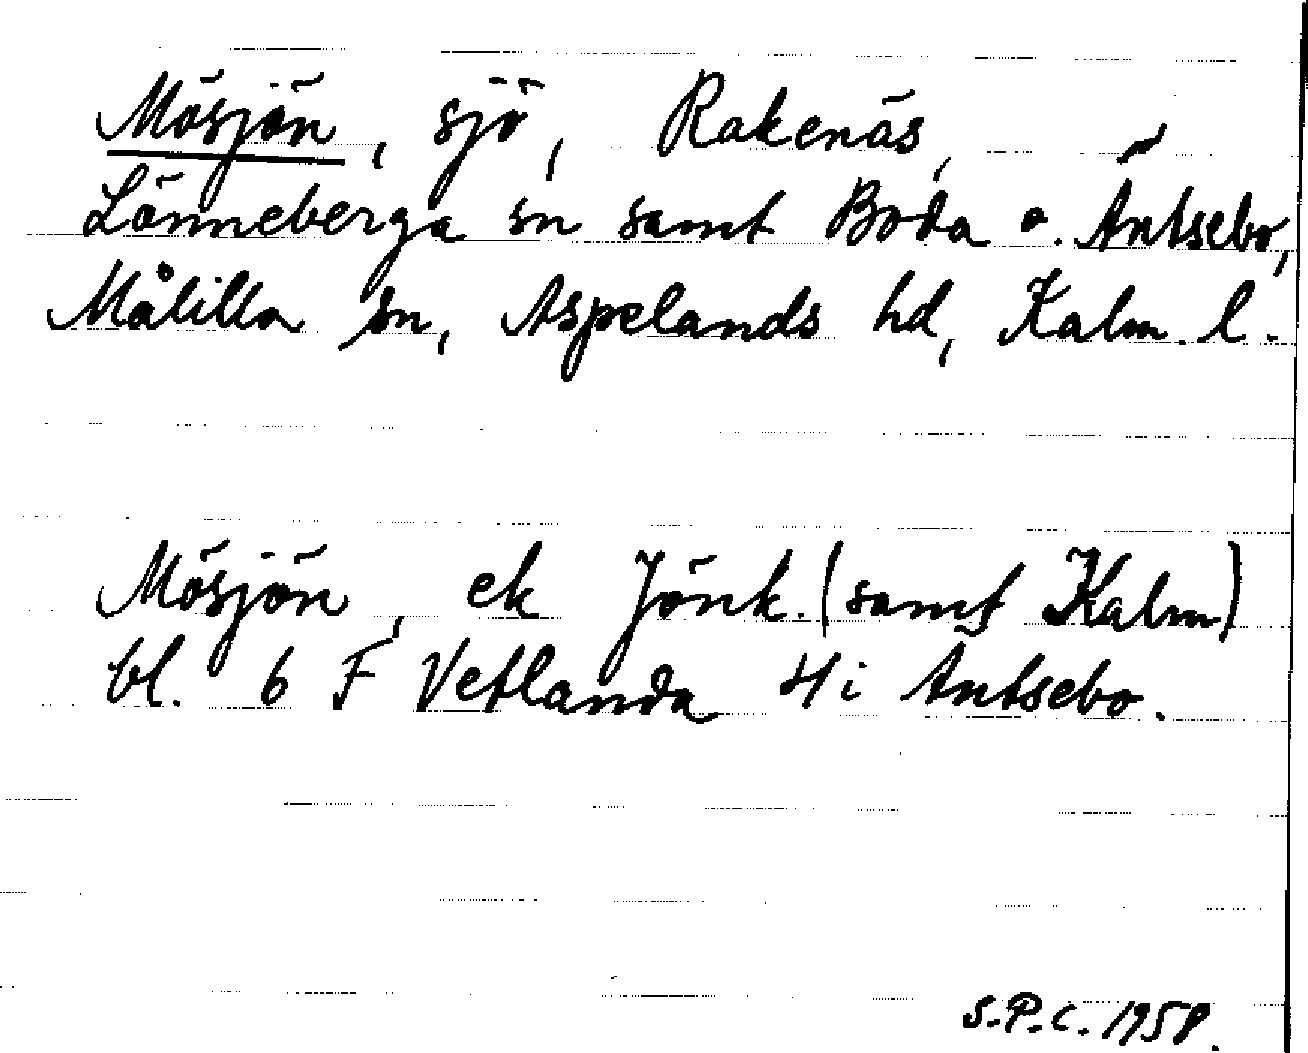 Mösjön, sjö, Rakenäs,
Lönneberga sn samt Boda o. Äntsebo,
Målilla sn, Aspelands hd, Kalm. l.
Mösjön, ek Jönk. (samt Kalm)
bl. 6 F Vetlanda 4i Äntsebo.
S.P.C. 1958.